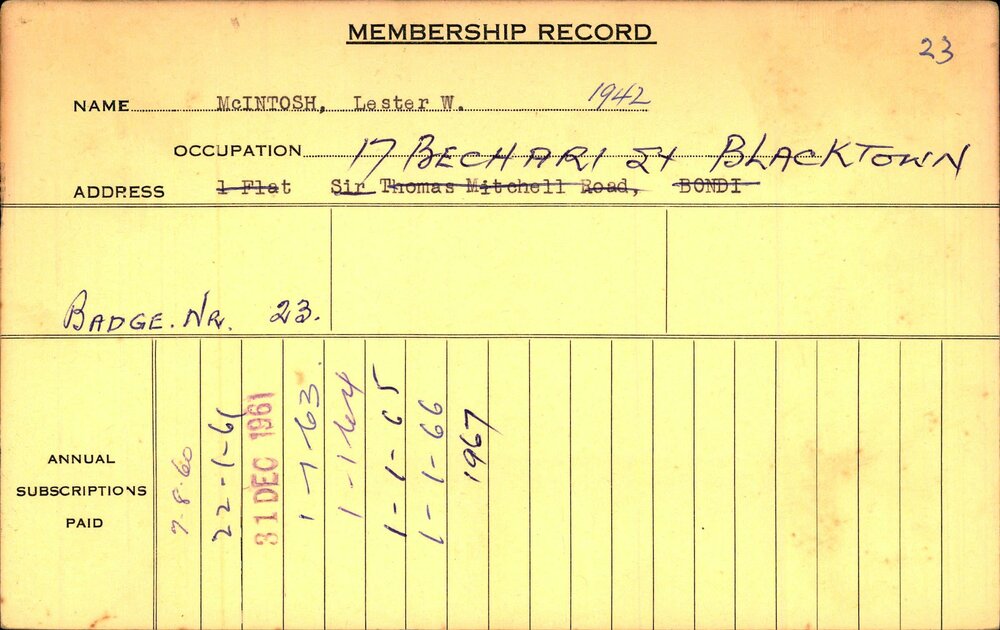 MEMBERSHIP RECORD
23
NAME McINTOSH, Lester W. 1942
OCCUPATION 17 BECHARI St BLACKTOWN
ADDRESS 1 Flat Sir Thomas Mitchell Road, BONDI
BADGE. NR. 23.
ANNUAL
SUBSCRIPTIONS
PAID
7-8-60
22-1-61
31 DEC 1961
1-7-63.
1-1-64
1-1-65
1-1-66
1967